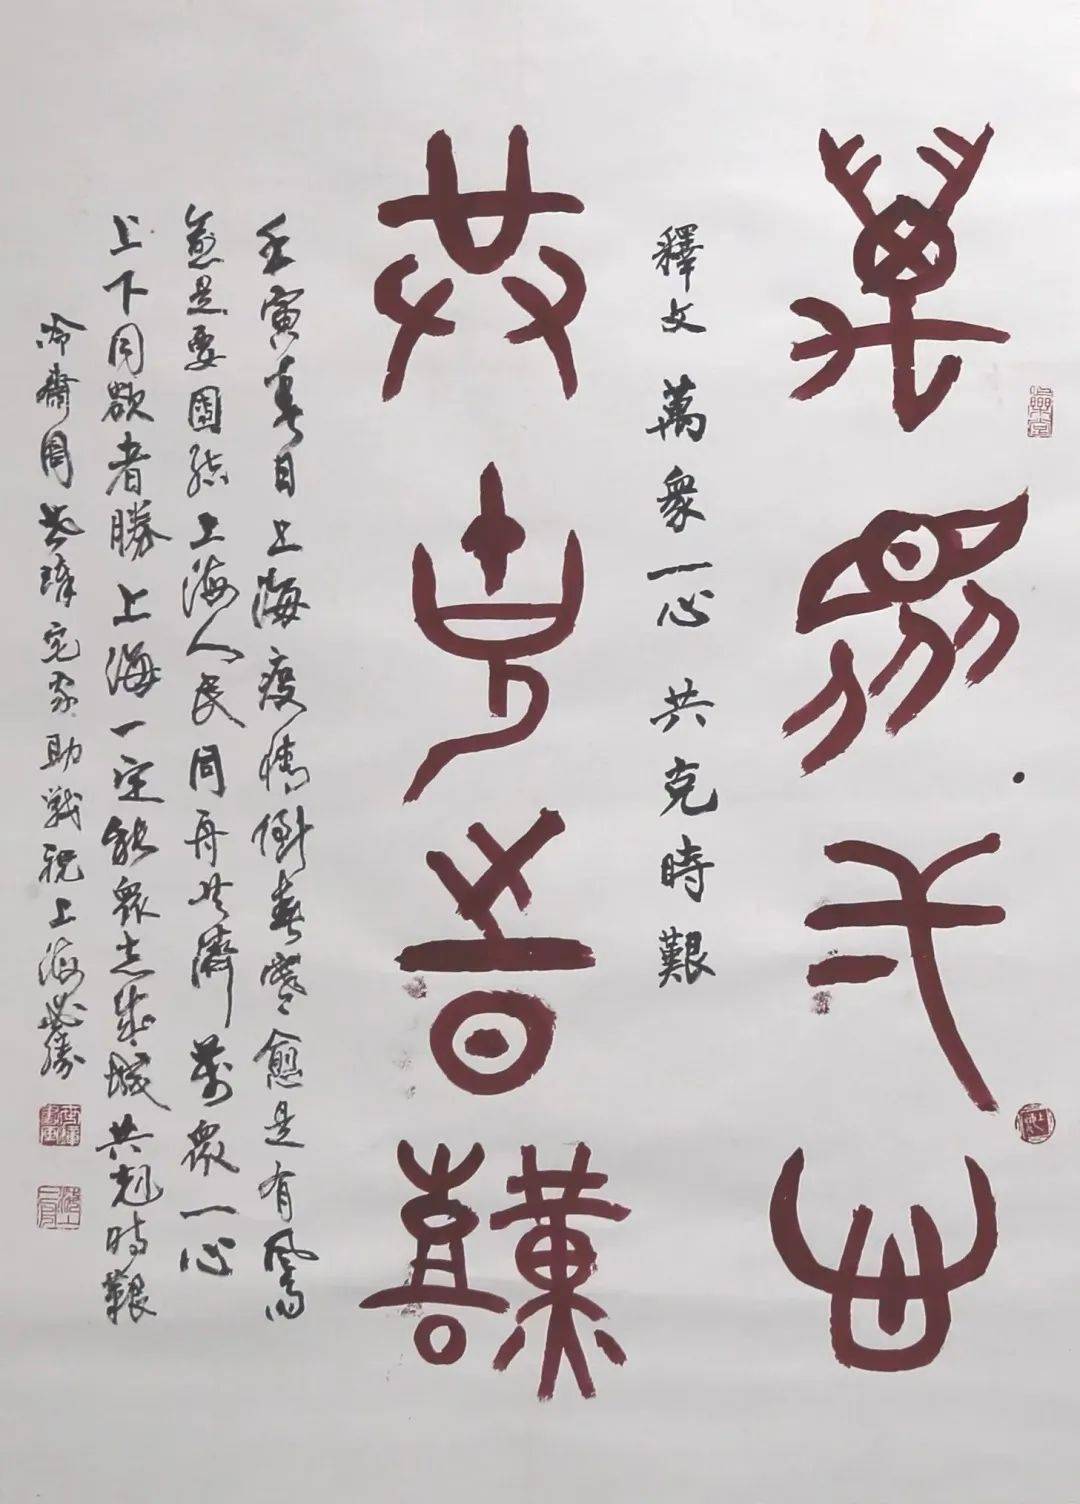 萬眾一心
釋文 萬衆一心 共克時艱
共克時艱
壬寅春日上海疫情倒春寒愈是有風雨
愈是要團結上海人民同舟共濟萬衆一心
上下同欲者勝上海一定能衆志成城共尅時艱
冷齋周宅家助戰祝上海必勝